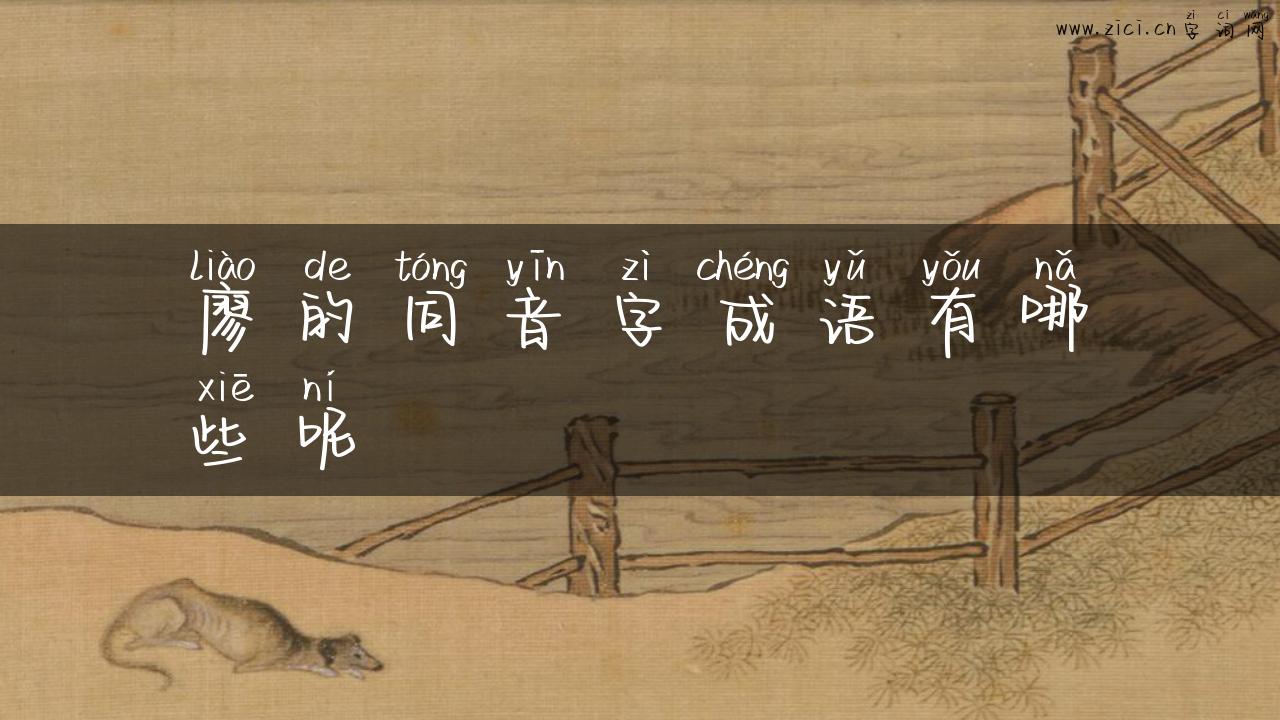 zì cí wǎng
www.zici.cn 字词网
liào de tóng yīn zì chéng yǔ yǒu nǎ
廖的同音字成语有哪
xiē ní
些呢